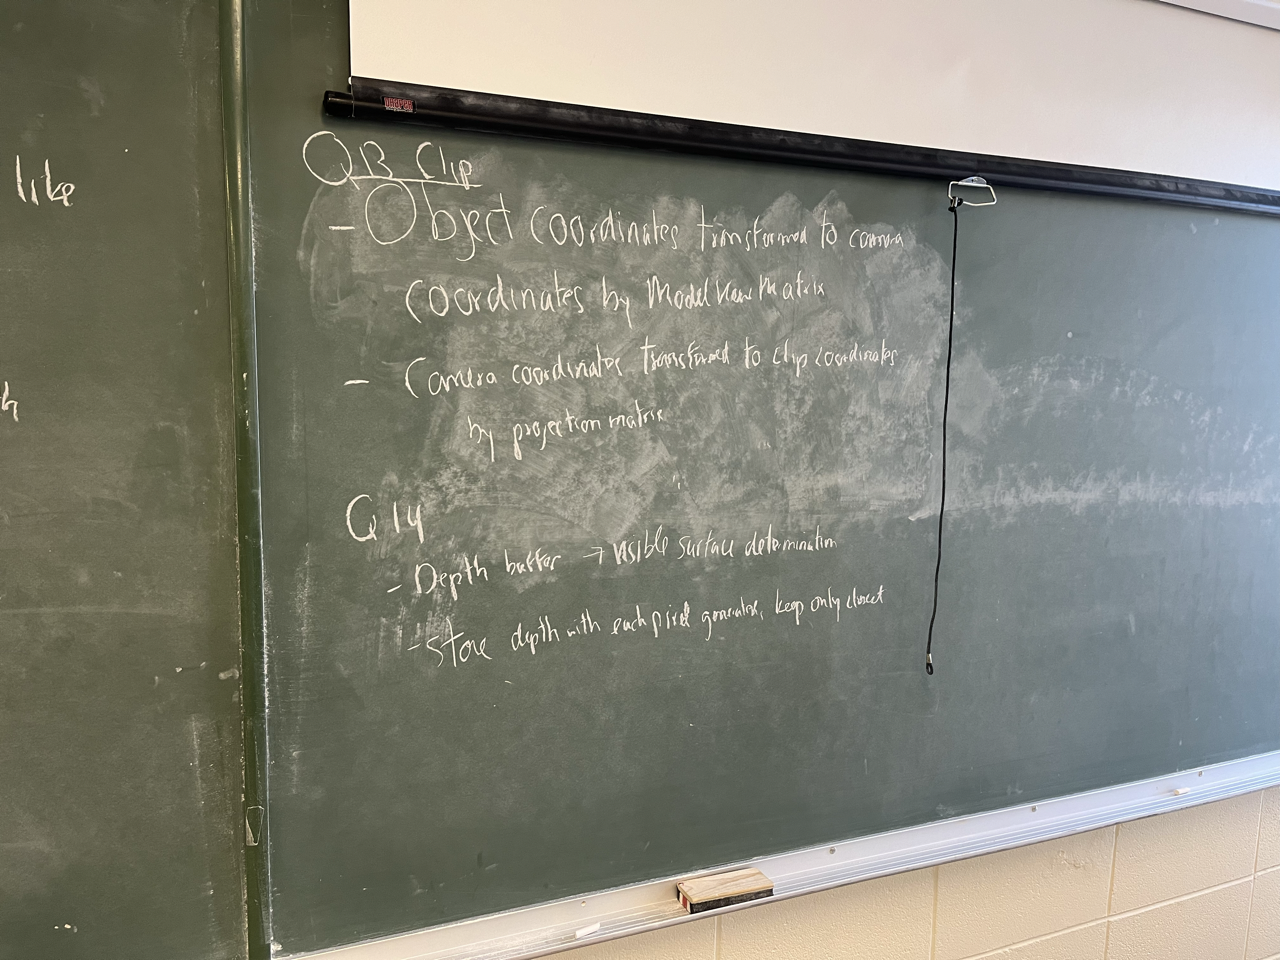 like
h
DRAPER
Q13 Clip
- Object coordinates transformed to camera
coordinates by ModelView Matrix
- Camera coordinates transformed to clip coordinates
by projection matrix
Q14
- Depth buffer → visible surface determination
- Store depth with each pixel generated, keep only closest